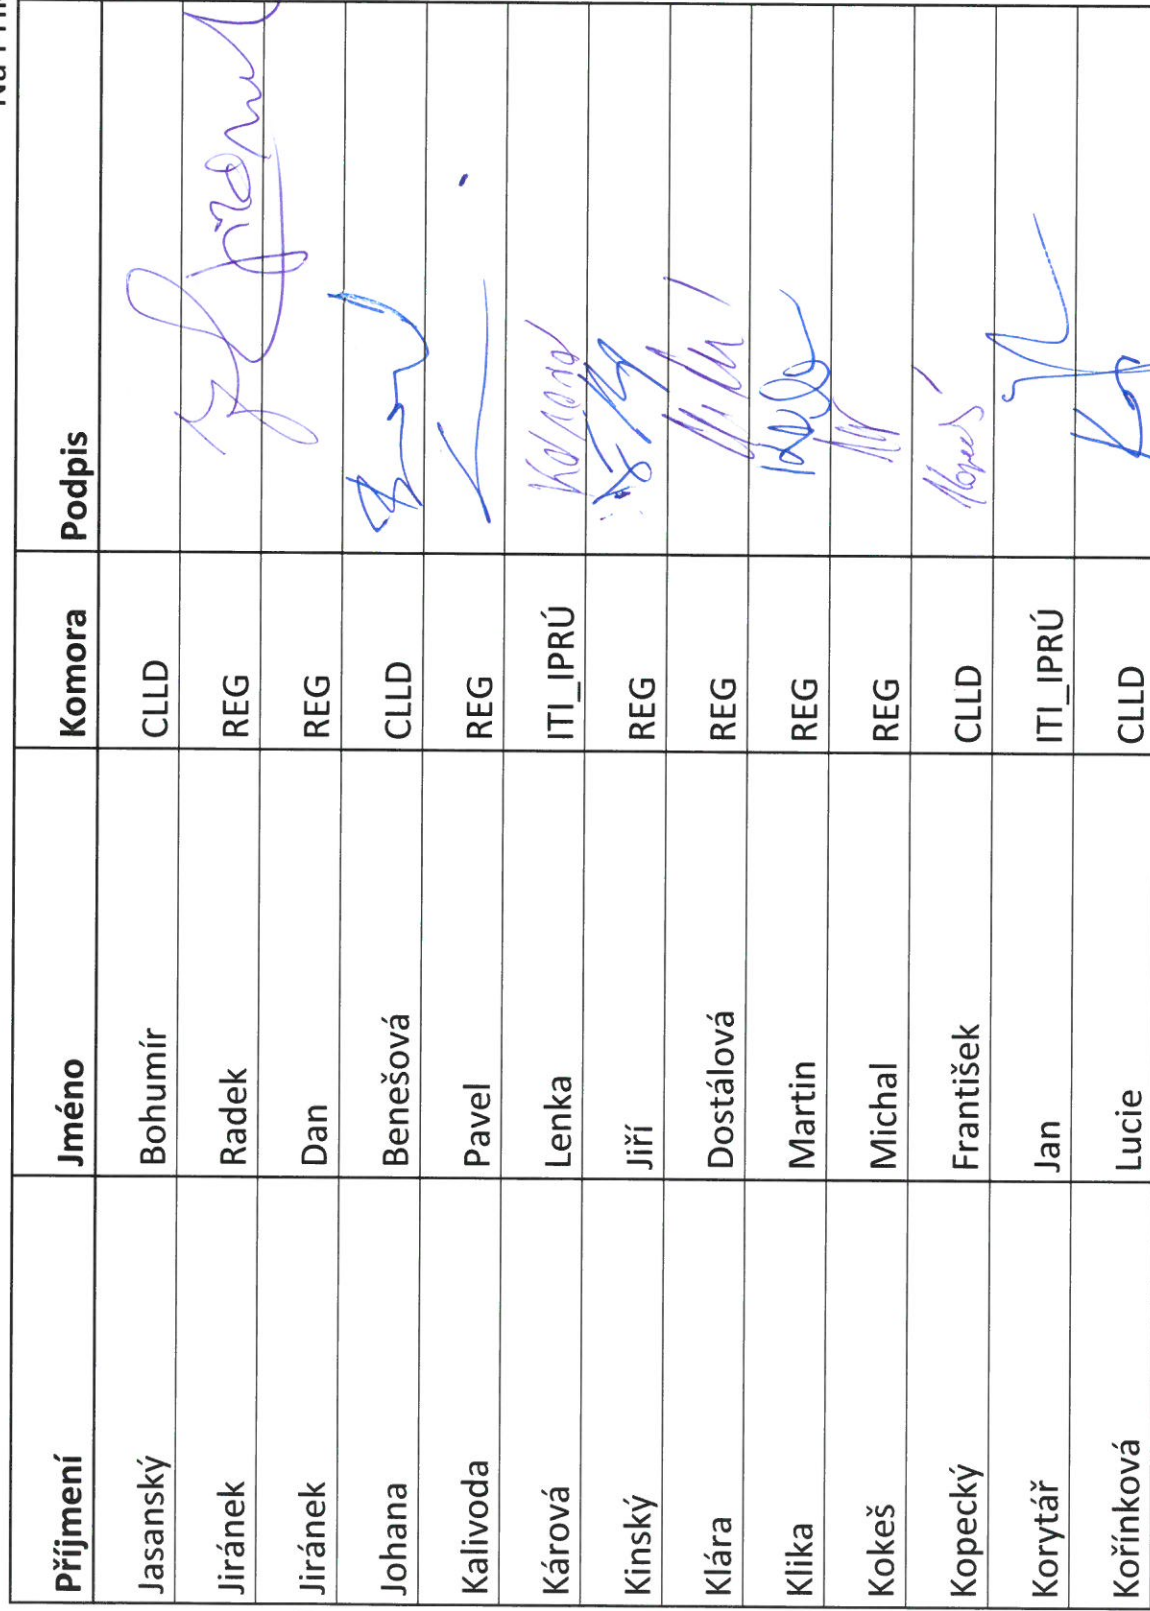 Příjmení Jméno Komora Podpis
Jasanský Bohumír CLLD
Jiránek Radek REG
Jiránek Dan REG
Johana Benešová CLLD
Kalivoda Pavel REG
Kárová Lenka ITI_IPRÚ
Kinský Jiří REG
Klára Dostálová REG
Klika Martin REG
Kokeš Michal REG
Kopecký František CLLD
Korytář Jan ITI_IPRÚ
Kořínková Lucie CLLD